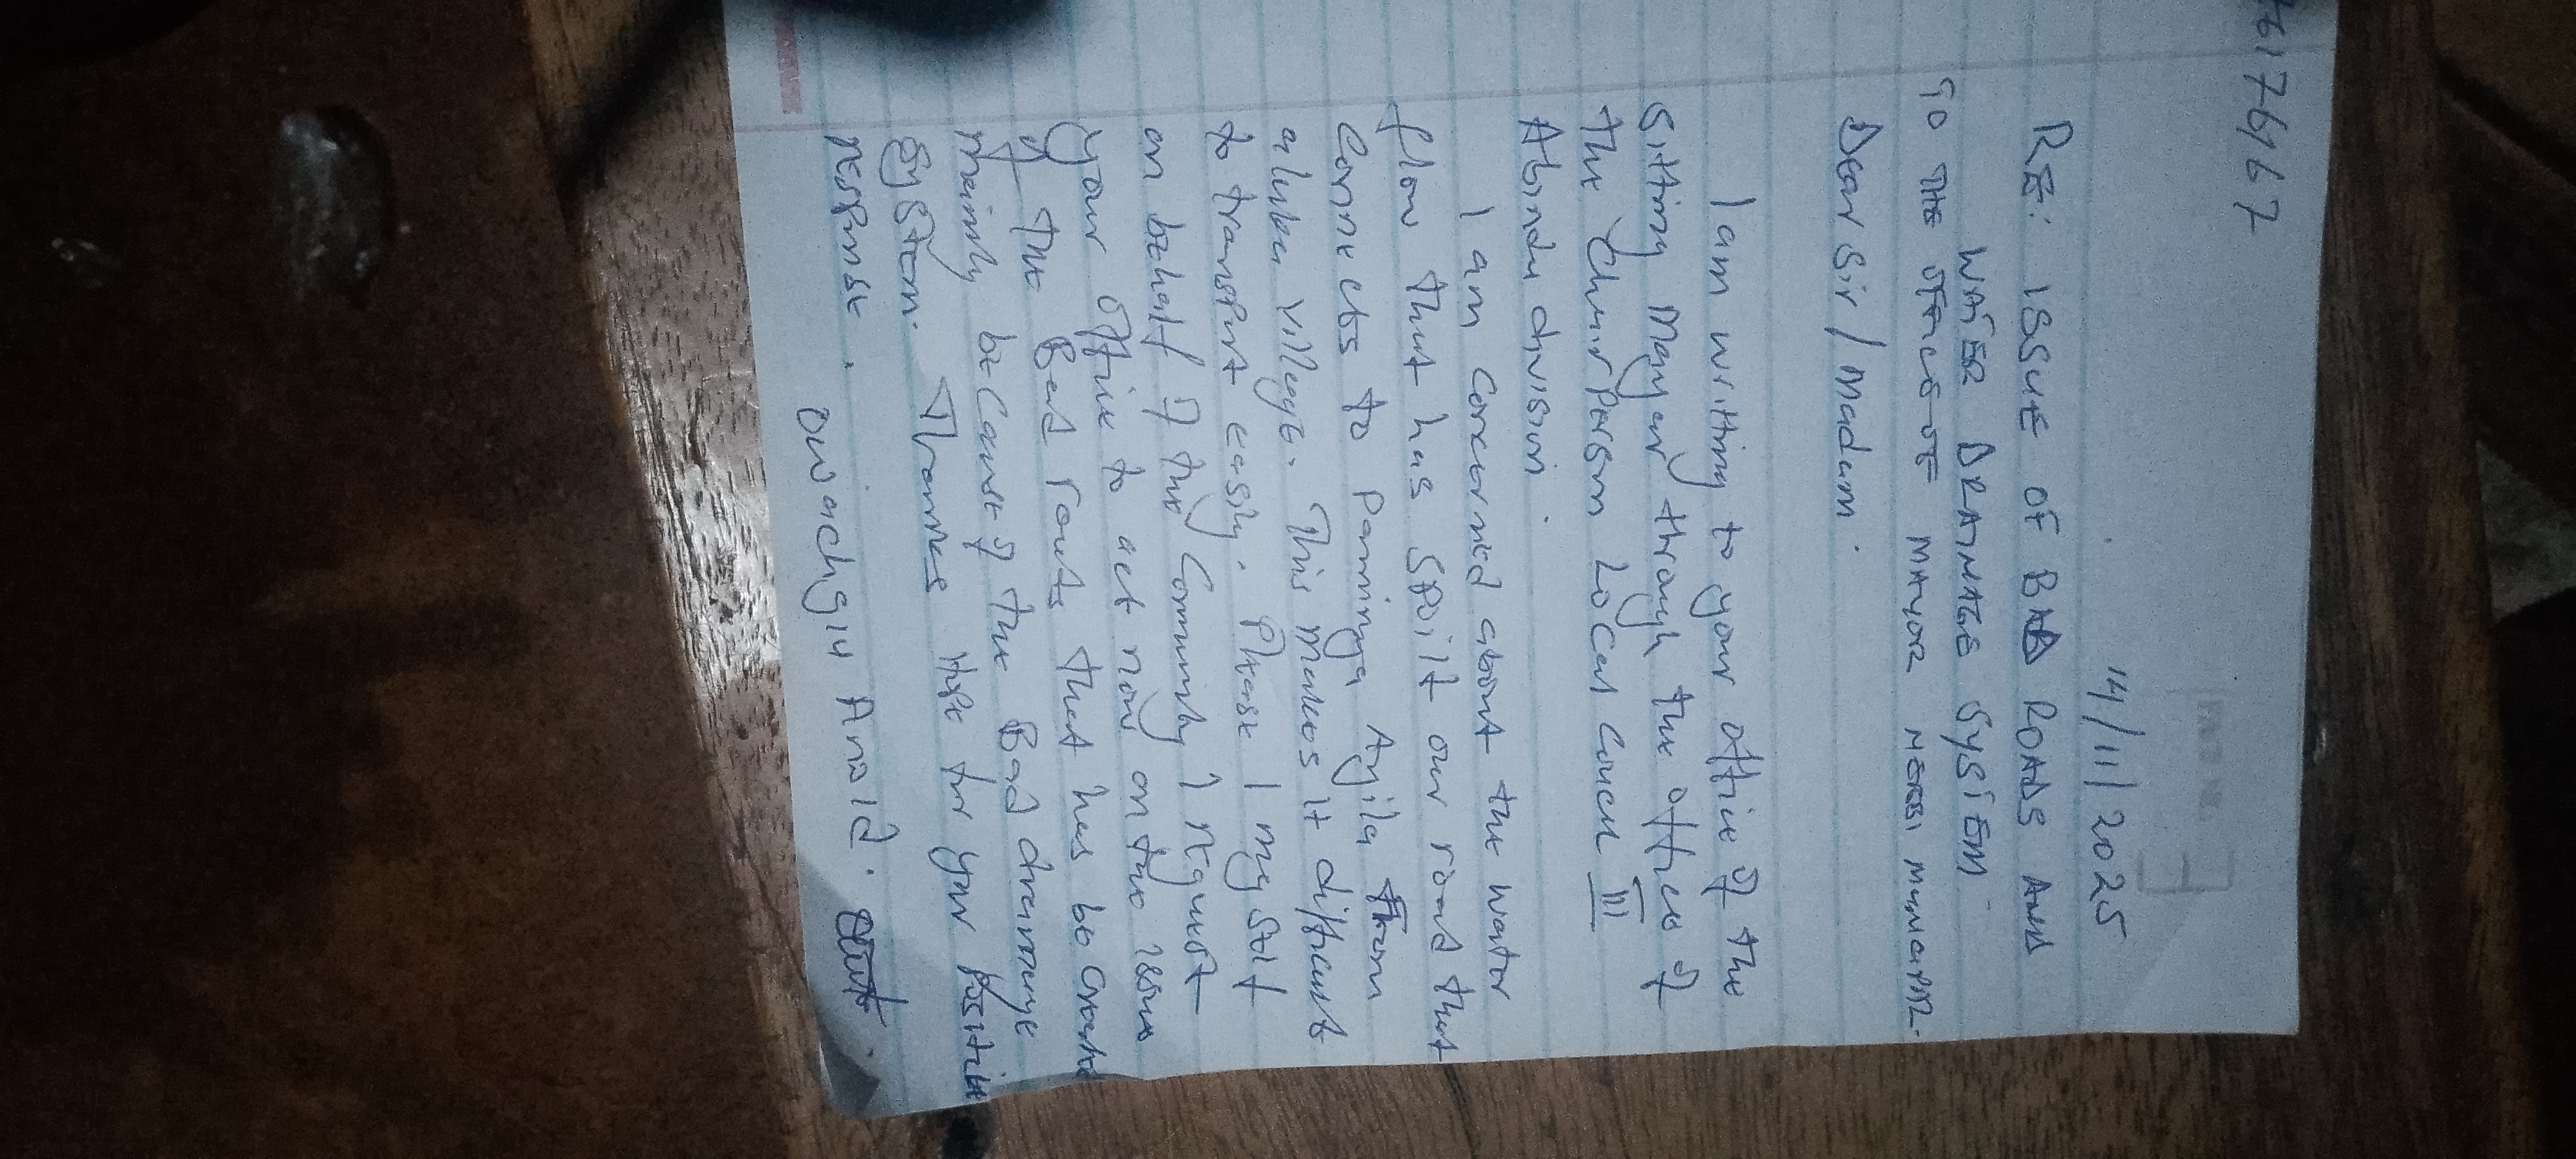 76176167
14/11/2025
RE: ISSUE OF BAD ROADS AND
WATER DRAINAGE SYSTEM.
TO THE OFFICE OF MAYOR NEBBI MUNICIPAL.
Dear Sir/Madam.
I am writing to your office of the
sitting Mayor through the office of
the Chairperson Local Council III
Abindu division.
I am concerned about the water
flow that has spoilt our road that
connects to Paminya Ayila from
aluka village. This makes it difficult
to transport easily. Please I my self
on behalf of the Community I request
your office to act now on the issue
of the Bad roads that has be created
mainly because of the Bad drainage
System. Thanks Hope for your positive
response.
OWACHGIU Arnold.